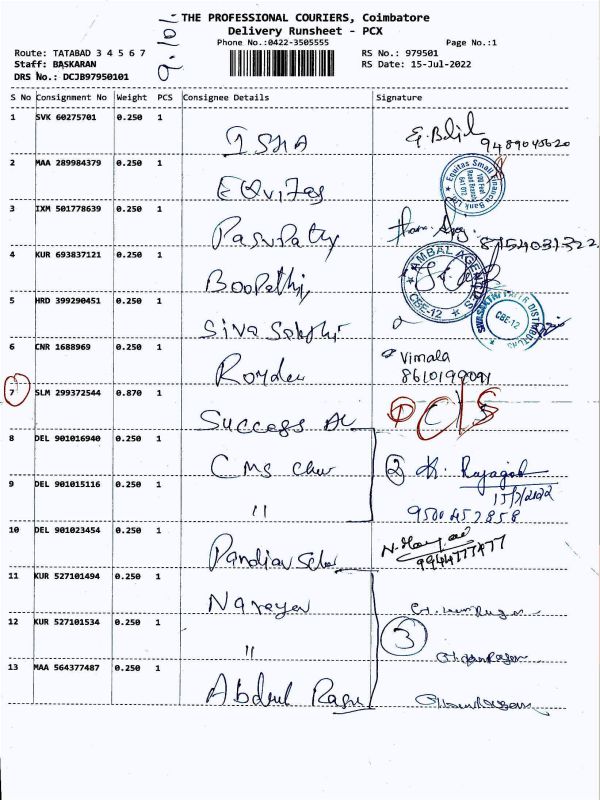 THE PROFESSIONAL COURIERS, Coimbatore
Delivery Runsheet - PCX
Phone No.:0422-3505555
Page No.:1
Route: TATABAD 3 4 5 6 7
RS No.: 979501
Staff: BASKARAN
RS Date: 15-Jul-2022
DRS No.: DCJB97950101
S No Consignment No Weight PCS Consignee Details Signature
1 SVK 60275701 0.250 1
ISHA
9489045620
2 MAA 289984379 0.250 1
Equitas
Equitas Small Finance Bank Ltd
100 Feet Road Branch
3 IXM 501778639 0.250 1
Pasupathy
8754031322
4 KUR 693837121 0.250 1
Boopathy
AMBAL AGENCIES
CBE-12
5 HRD 399290451 0.250 1
Siva Sakthi
CBE-12
6 CNR 1688969 0.250 1
Vimala
8610199091
7 SLM 299372544 0.870 1
Success
D C/S
8 DEL 901016940 0.250 1
CMS
2 K. Rajagopal
15/7/2022
9 DEL 901015116 0.250 1
"
9500457858
10 DEL 901023454 0.250 1
Pandian
9944777477
11 KUR 527101494 0.250 1
Narayan
12 KUR 527101534 0.250 1
"
3
13 MAA 564377487 0.250 1
Abdul